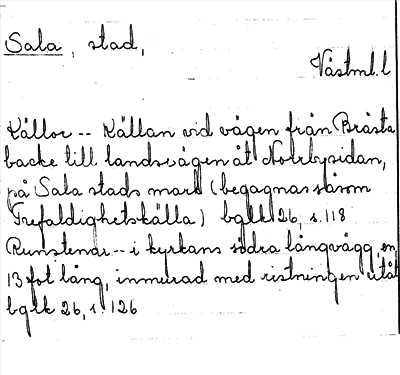 Sala, stad,
Västml. l
Källor -- Källan vid vägen från Bråsta
backe till landsvägen åt Norrbysidan,
på Sala stads mark (begagnas såsom
Trefaldighetskälla) bglk 26, s. 118
Runstenar -- i kyrkans södra långvägg, en
13 fot lång, inmurad med ristningen utåt
bglk 26, s. 126